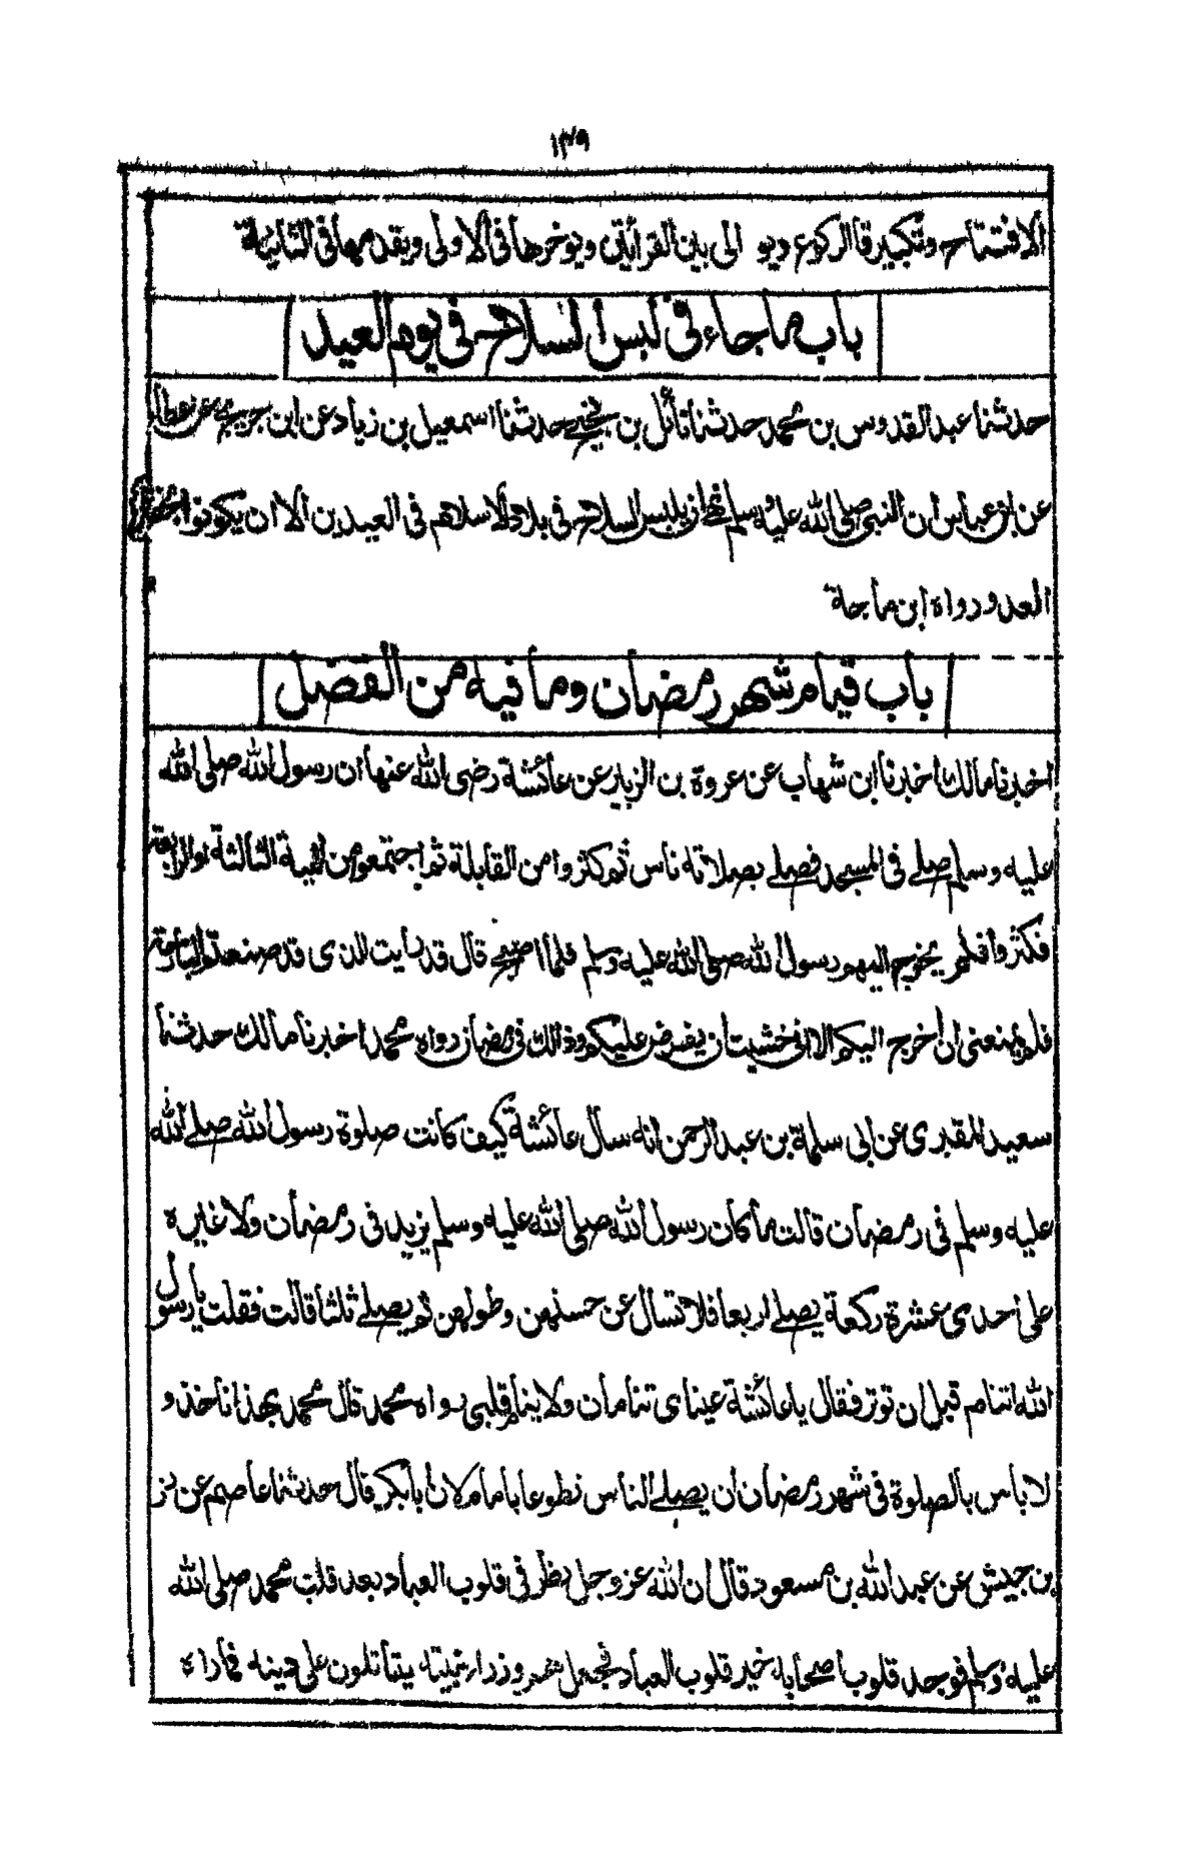 ١٣٩
الافتتاح وتكبيرقا الركوع ديو الى بين القرأتين ويوخرها فى الاولى ويقدمها فى الثانية
باب ما جاء فى لبس السلاح فى يوم العيد
حدثنا عبد القدوس بن محمد حدثنا نائل بن نجيح حدثنا اسمعيل بن زياد عن ابن جريج عن عطاء
عن ابن عباس ان النبى صلى الله عليه وسلم نهى ان يلبس السلاح فى بلاد الاسلام فى العيدين الا ان يكونوا بحضرة
العدو رواه ابن ماجة
باب قيام شهر رمضان وما فيه من الفضل
اخبرنا مالك اخبرنا ابن شهاب عن عروة بن الزبير عن عائشة رضى الله عنها ان رسول الله صلى الله
عليه وسلم صلے فى المسجد فصلے بصلاته ناس ثم كثروا من القابلة ثم اجتمعو من الليلة الثالثة او الرابعة
فكثروا فلم يخرج اليهم رسول الله صلى الله عليه وسلم فلما اصبح قال قد رأيت الذى قد صنعتم البارحة
فلم يمنعنى ان اخرج اليكم الا انى خشيت ان يفرض عليكم وذالك فى رمضان رواه محمد اخبرنا مالك حدثنا
سعيد المقبرى عن ابى سلمة بن عبد الرحمن انه سأل عائشة كيف كانت صلوة رسول الله صلے الله
عليه وسلم فى رمضان قالت ما كان رسول الله صلى الله عليه وسلم يزيد فى رمضان ولا غيره
على احدى عشرة ركعة يصلے اربعا فلا تسال عن حسنهن وطولهن ثم يصلے ثلثا قالت فقلت يا رسول
الله اتنام قبل ان توتر فقال يا عائشة عيناى تنامان ولا ينام قلبى رواه محمد قال محمد بهذا ناخذ و
لا باس بالصلوة فى شهر رمضان ان يصلے الناس تطوعا بامام لان ابا بكر قال حدثنا عاصم عن زر
بن حبيش عن عبد الله بن مسعود قال ان الله عز وجل نظر فى قلوب العباد بعد قلب محمد صلى الله
عليه وسلم فوجد قلوب اصحابه خير قلوب العباد فجعلهم وزراء نبيه يقاتلون على دينه فما راه